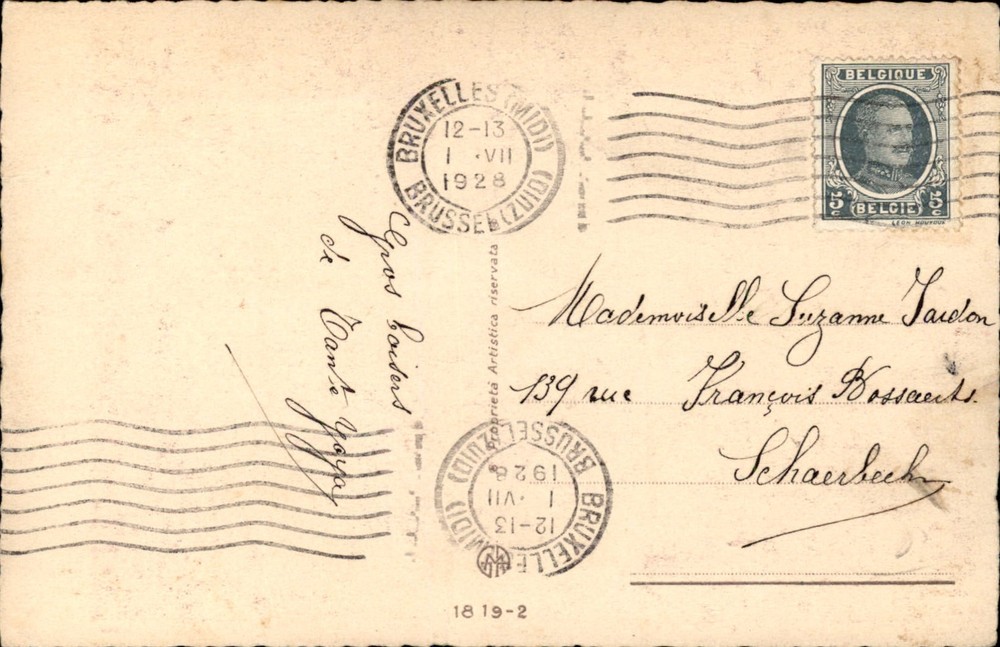 BELGIQUE
5 c BELGIË 5 c
BRUXELLES (MIDI)
12-13
1 ·VII
1928
BRUSSEL (ZUID)
Gros baisers
de Tante Yaya
Proprietà Artistica riservata
Mademoiselle Suzanne Jardon
139 rue François Bossaerts.
Schaerbeek
BRUXELLES (MIDI)
12-13
1 ·VII
1928
BRUSSEL (ZUID)
1819-2